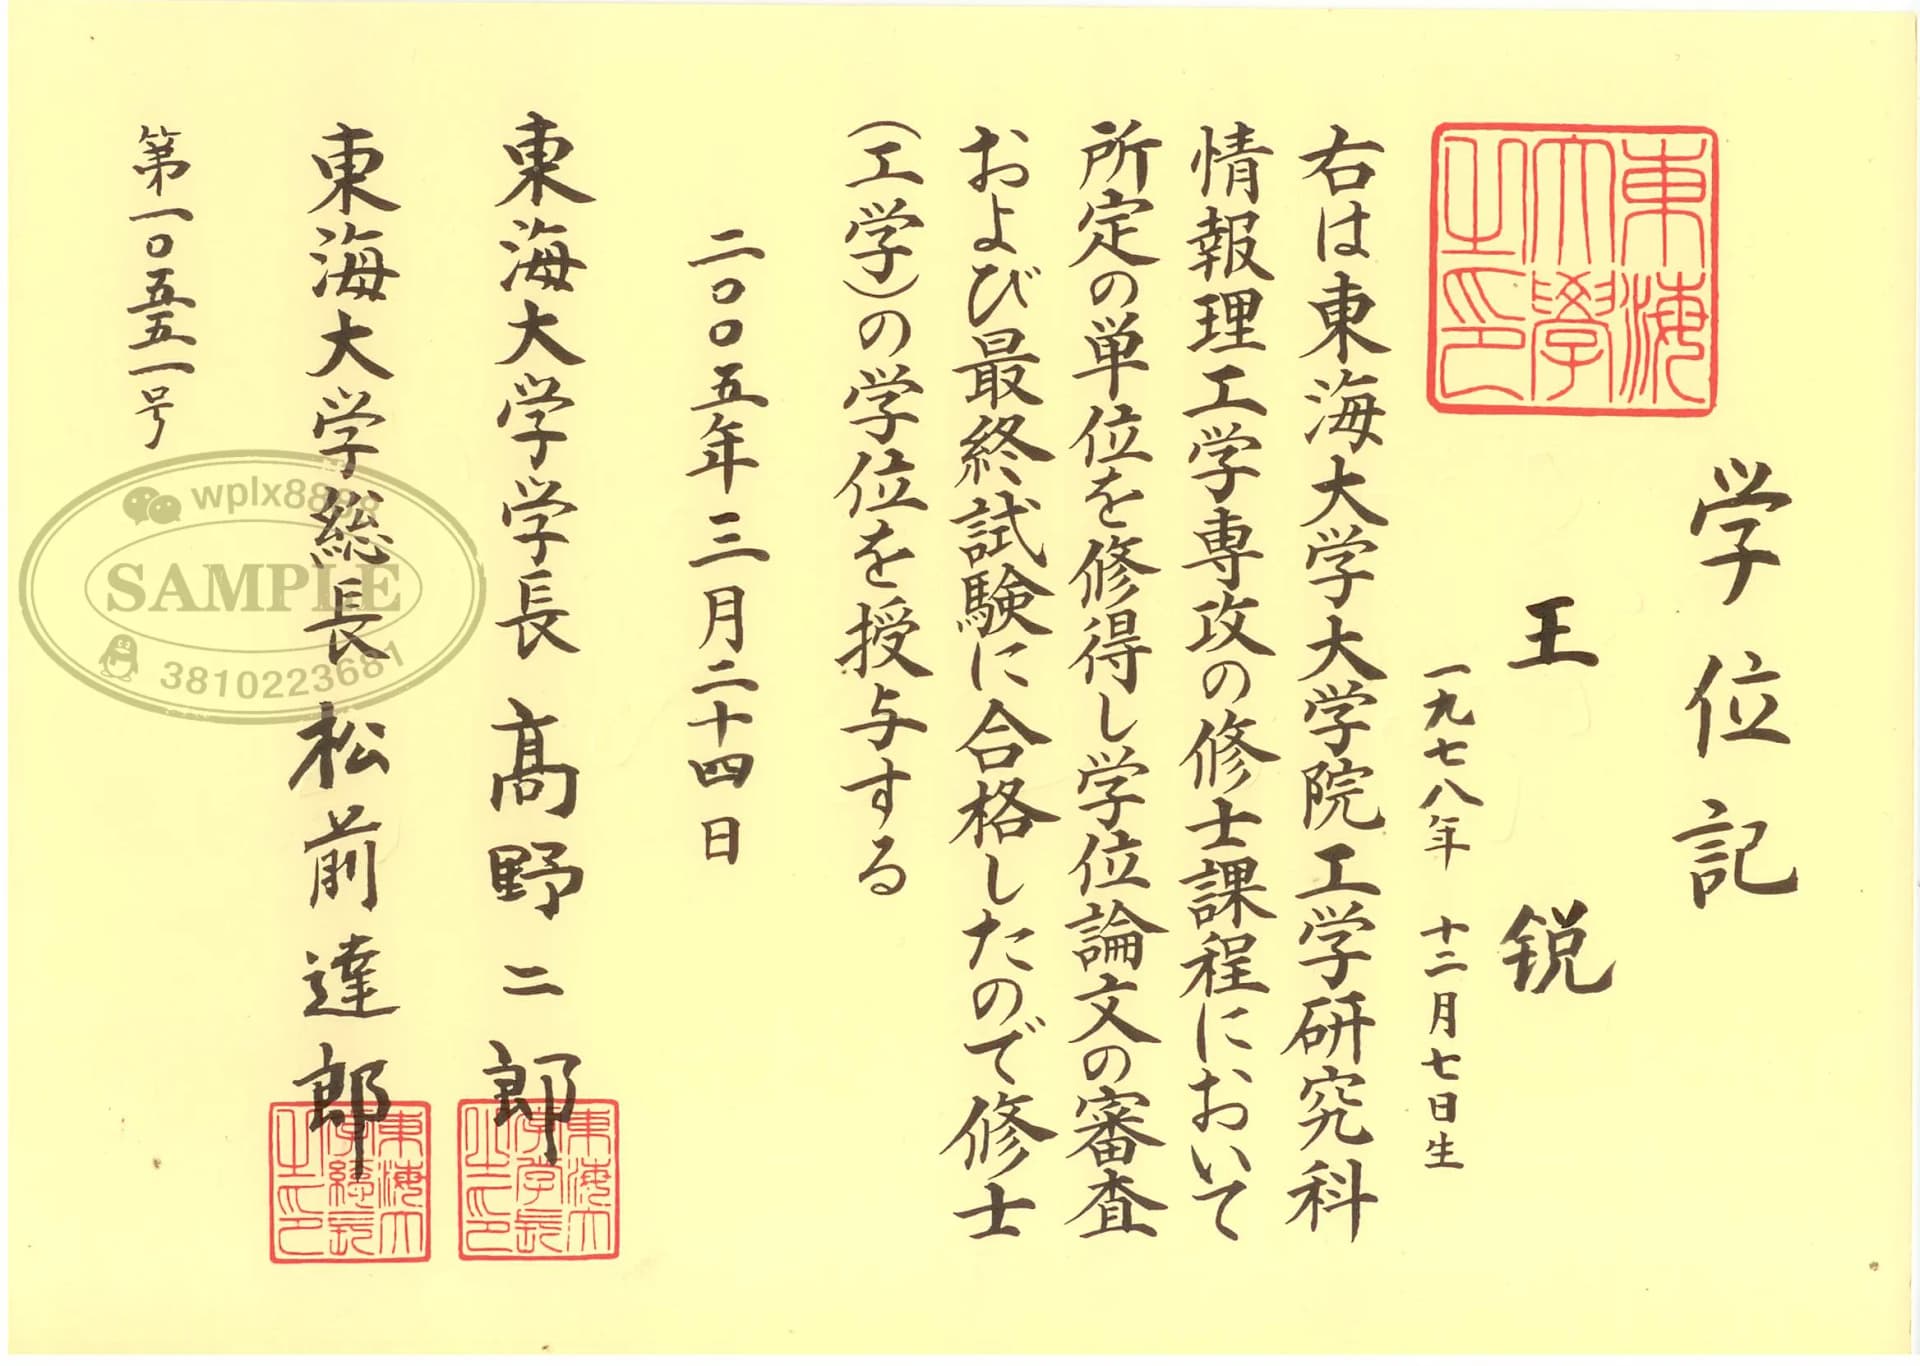 学位記
王 锐
一九七八年 十二月七日生
右は東海大学大学院工学研究科
情報理工学専攻の修士課程において
所定の単位を修得し学位論文の審査
および最終試験に合格したので修士
(工学)の学位を授与する
二〇〇五年三月二十四日
東海大学学長 髙野二郎
東海大学総長 松前達郎
第一〇五五一号
東海大學之印
東海大学学長之印
東海大学総長之印
wplx8888
SAMPLE
3810223681